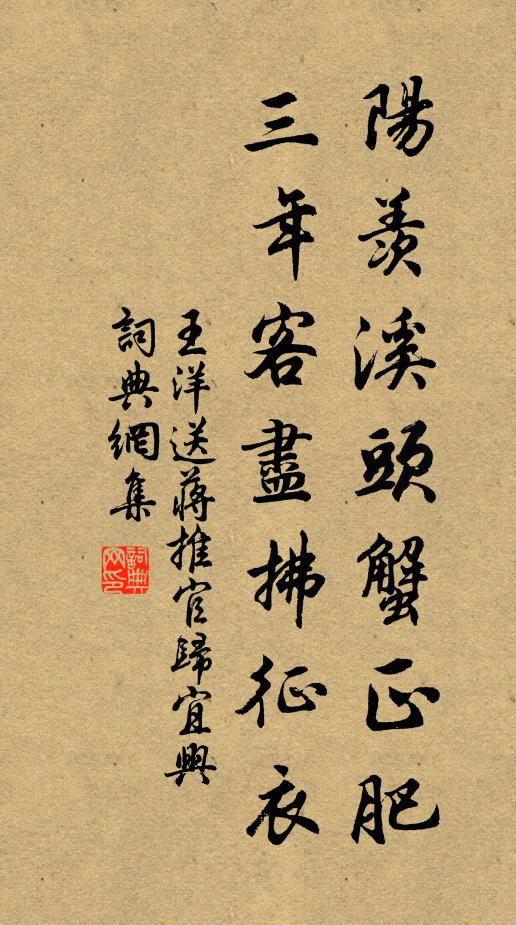 陽羨溪頭蟹正肥
三年客盡拂征衣
王洋送蔣推官歸宜興
詞典網集
詞典網印